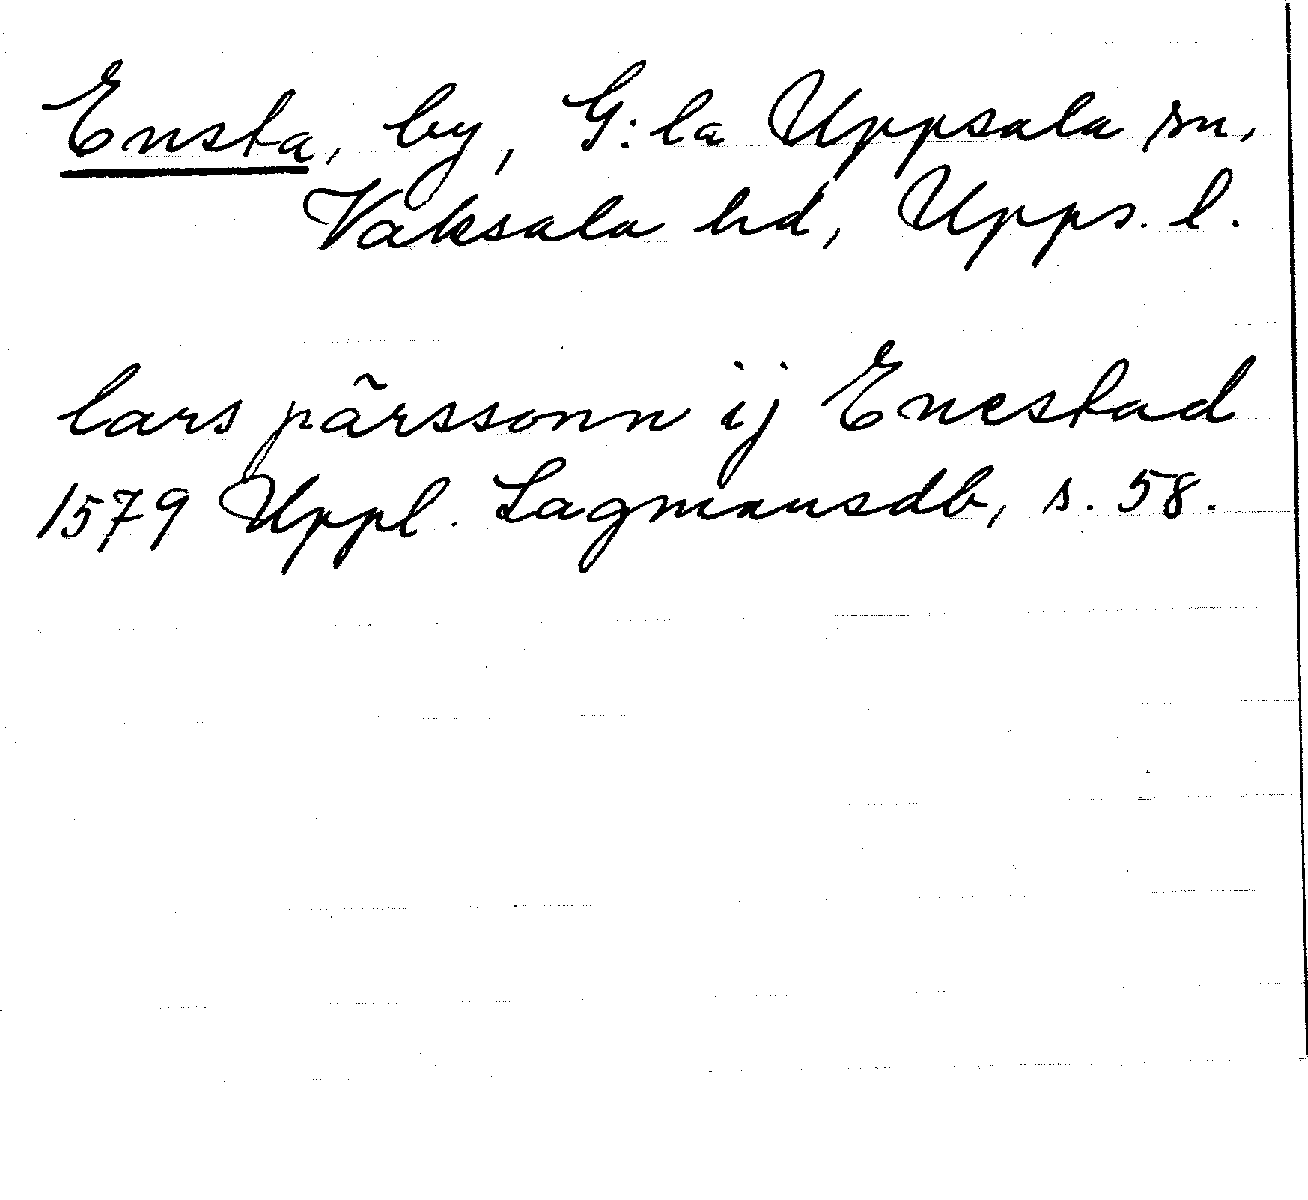 Ensta, by, G:la Uppsala sn,
Vaksala hd, Upps. l.
lars pãrssonn ij Enestad
1579 Uppl. Lagmansdb, s. 58.